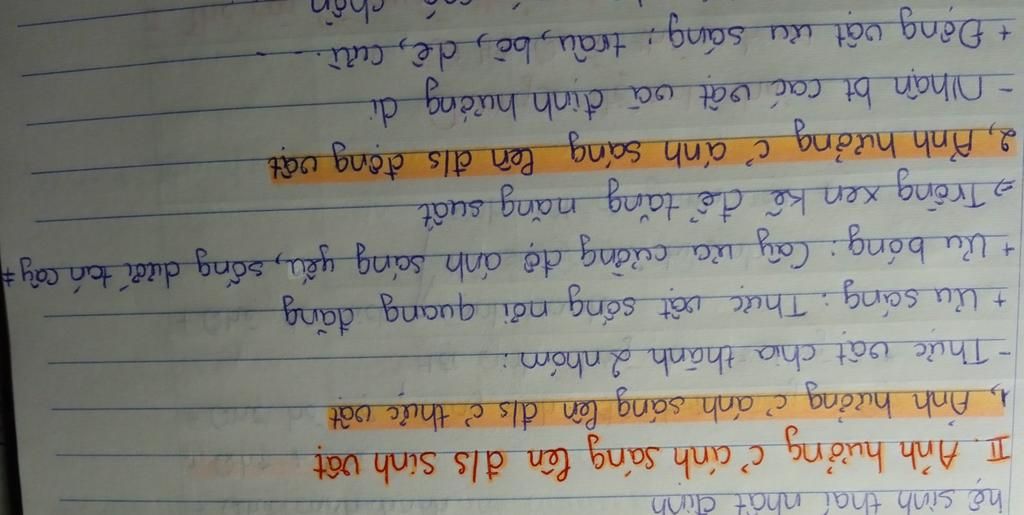 hệ sinh thái nhất định
II. Ảnh hưởng c̉ ánh sáng lên đ/s sinh vật
1, Ảnh hưởng c̉ ánh sáng lên đ/s c̉ thực vật
- Thực vật chia thành 2 nhóm:
+ Ưu sáng: Thực vật sống nơi quang đãng
+ Ưu bóng: Cây ưa cường độ ánh sáng yếu, sống dưới tán cây ≠
⇒ Trồng xen kẽ để tăng năng suất
2, Ảnh hưởng c̉ ánh sáng lên đ/s động vật
- Nhận bt các vật và định hướng di
+ Động vật ưu sáng: trâu, bò, dê, cừu...